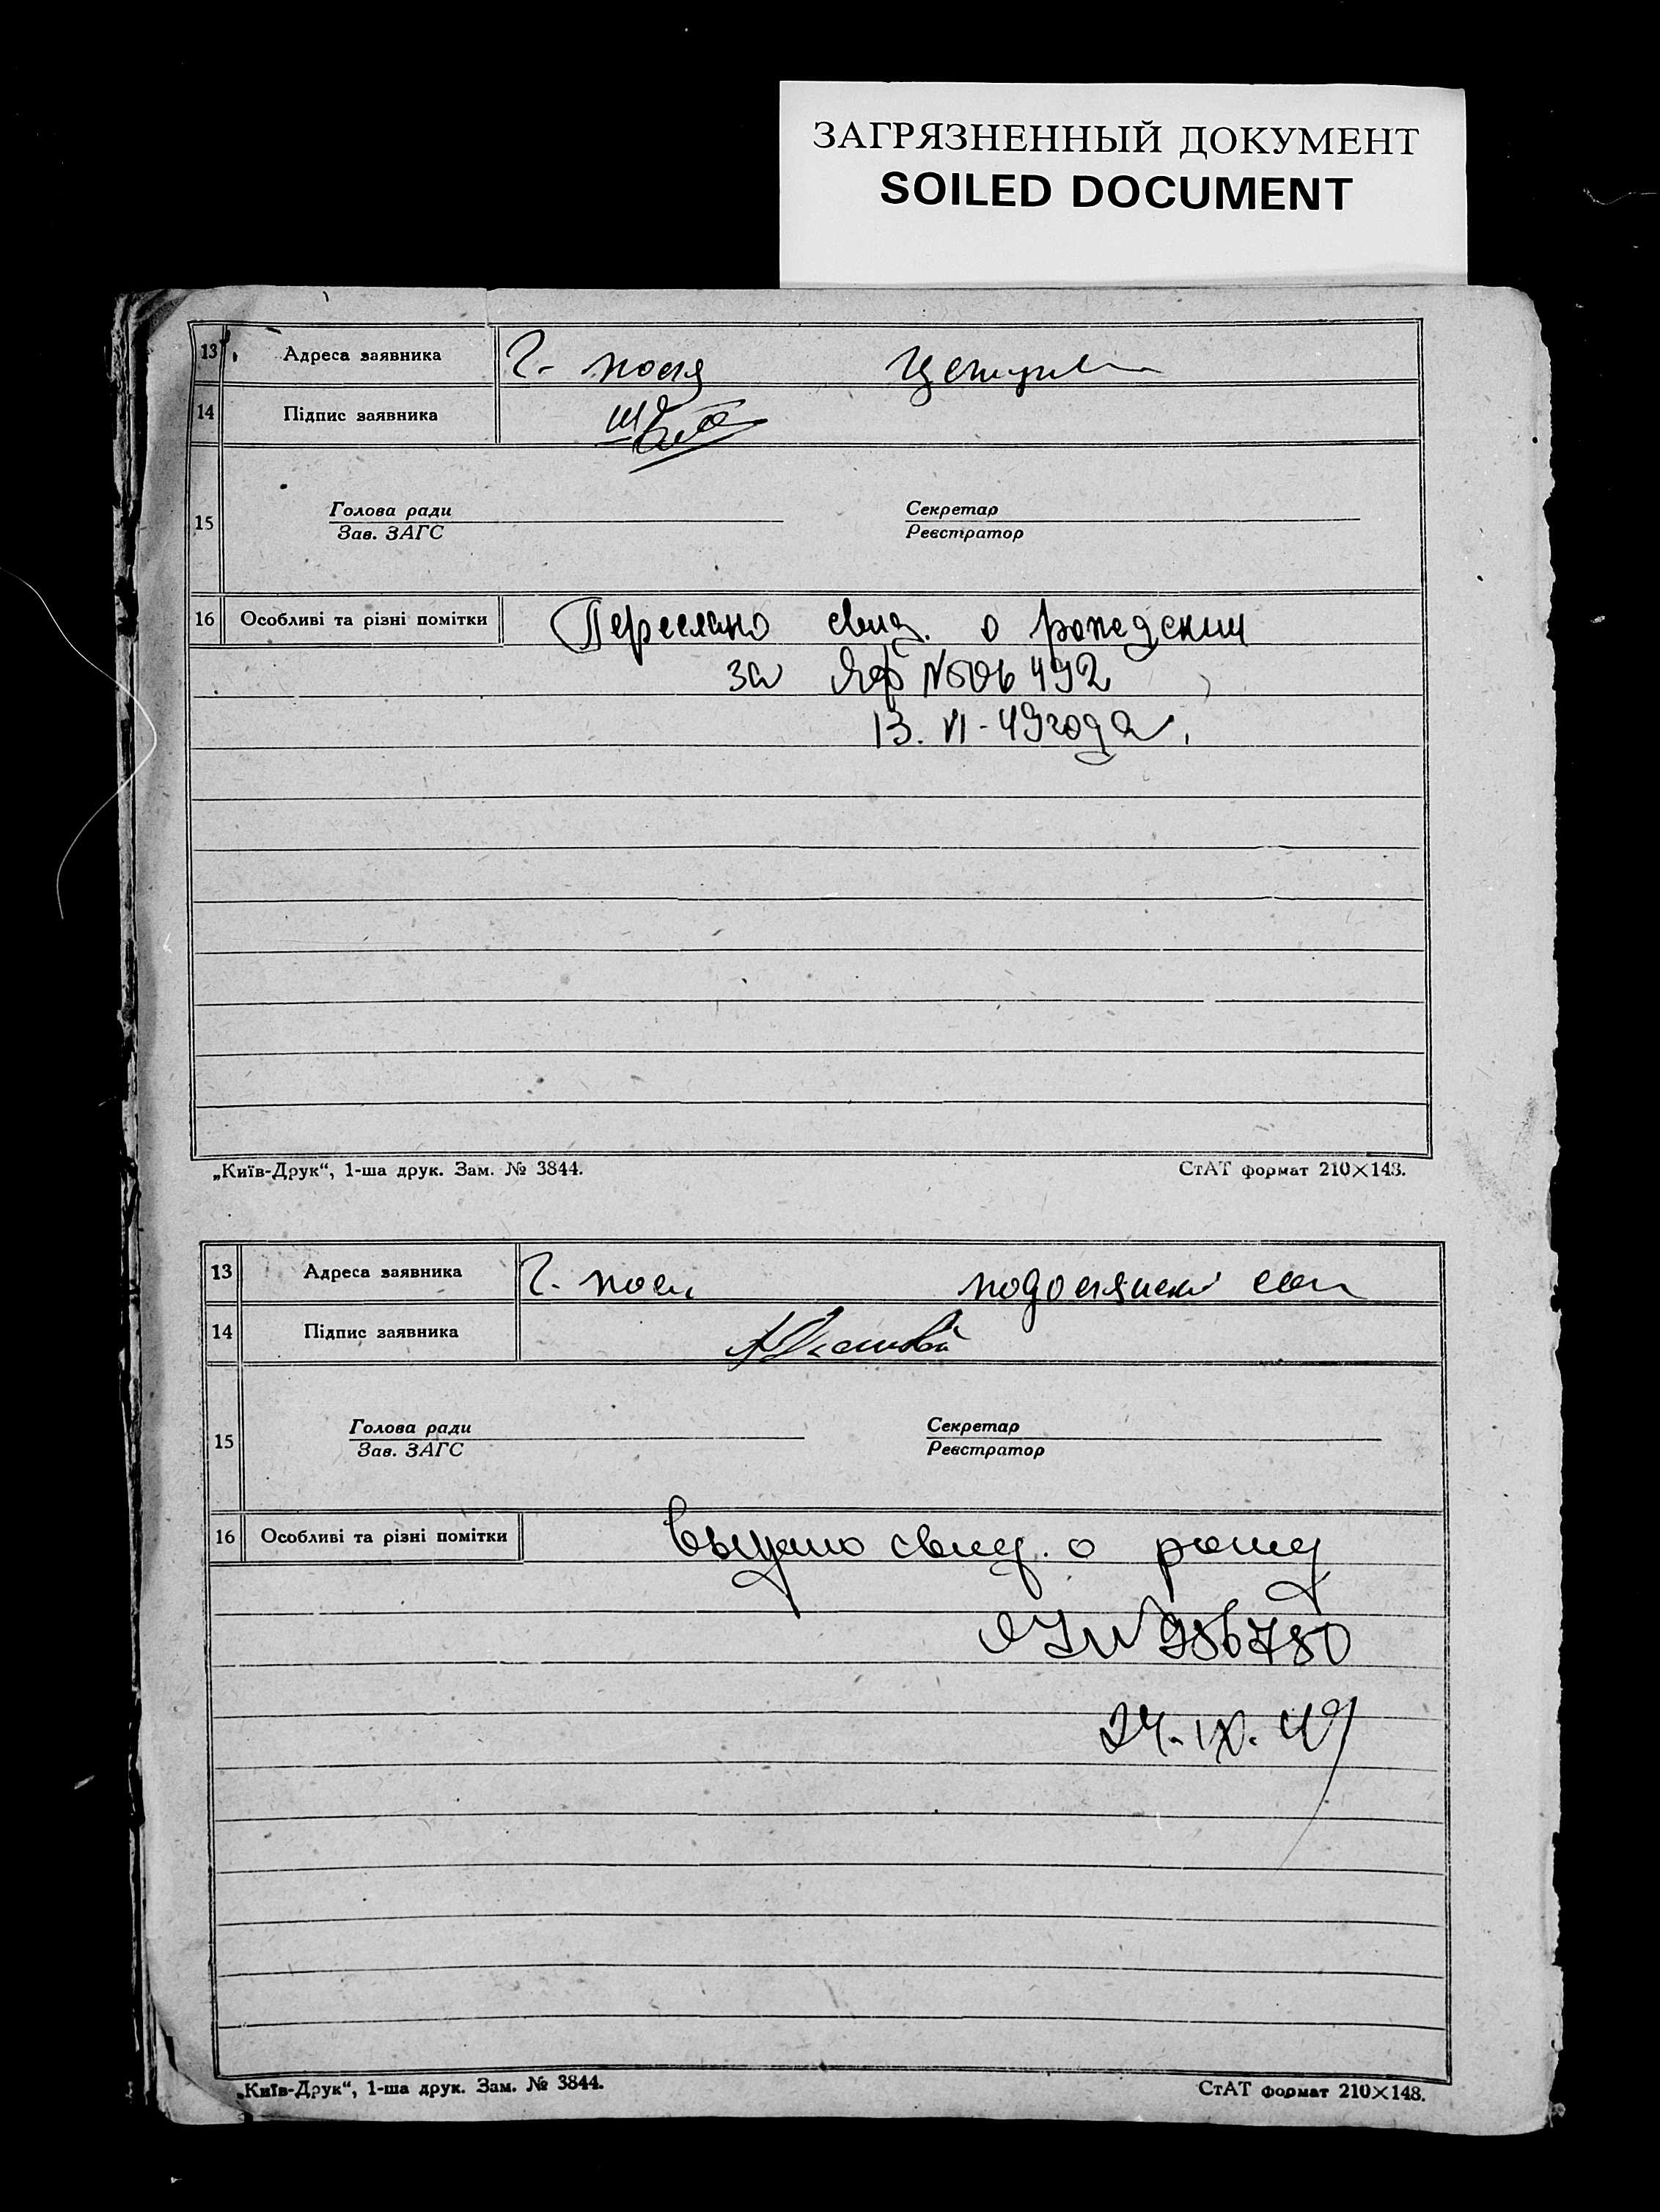 ЗАГРЯЗНЕННЫЙ ДОКУМЕНТ
SOILED DOCUMENT
13 Адреса заявника Г.
14 Підпис заявника
15 Голова ради Секретар
Зав. ЗАГС Реєстратор
16 Особливі та різні помітки Переслано свид. о рождении
за ЯФ № 506492
13. VI-49 года.
„Київ-Друк“, 1-ша друк. Зам. № 3844. СтАТ формат 210×148.
13 Адреса заявника Г.
14 Підпис заявника
15 Голова ради Секретар
Зав. ЗАГС Реєстратор
16 Особливі та різні помітки Выдано свид. о рожд
№ 986780
24. IX. 49
„Київ-Друк“, 1-ша друк. Зам. № 3844. СтАТ формат 210×148.